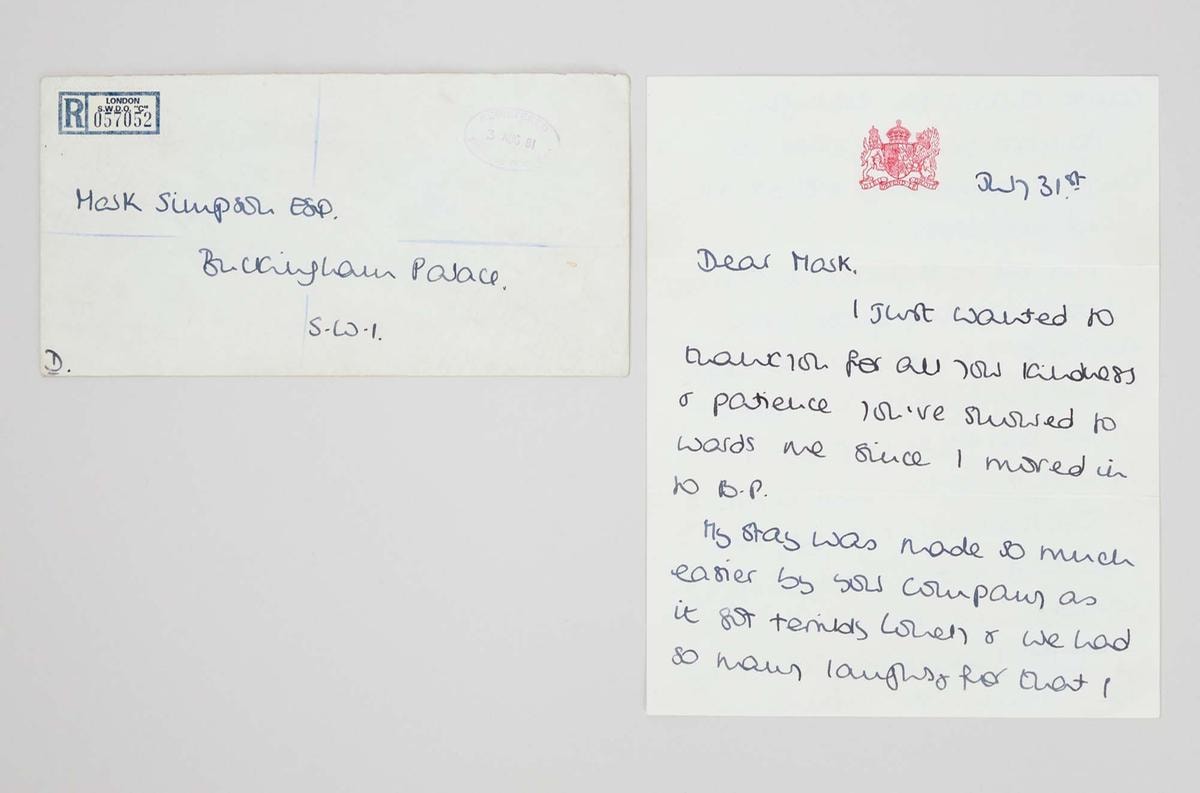 R
LONDON
S.W.D.O. "C"
057052
REGISTERED
3 AUG 81
Mark Simpson ESQ.
Buckingham Palace.
S.W.1.
D.
July 31st
Dear Mark.
I just wanted to
thank you for all your kindness
& patience you've showed to
wards me since I moved in
to B.P.
My stay was made so much
easier by your company as
it got terribly lonely & we had
so many laughs & for that I